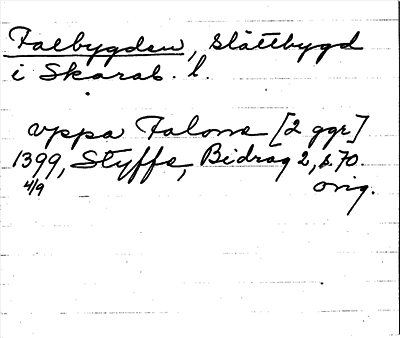 Falbygden, Slättbygd
i Skarab. l.
vppa Falone [2 ggr]
1399, Styffe, Bidrag 2, s. 70.
4/9 orig.